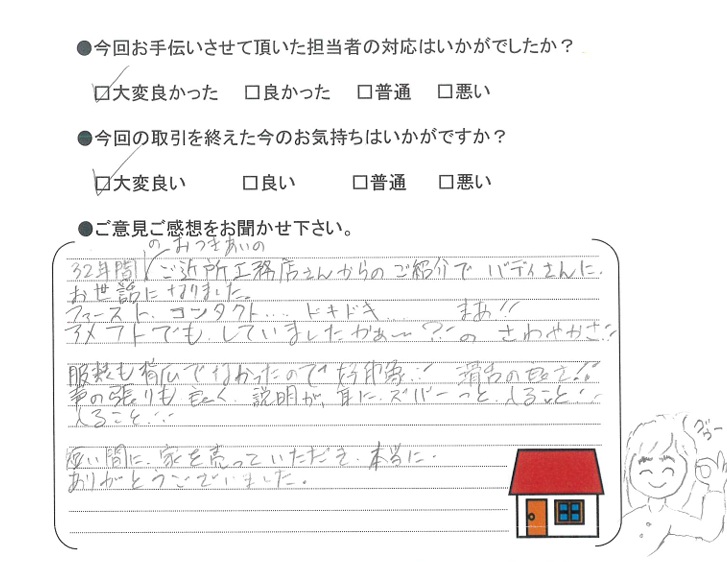 ●今回お手伝いさせて頂いた担当者の対応はいかがでしたか？
☑大変良かった □良かった □普通 □悪い
●今回の取引を終えた今のお気持ちはいかがですか？
☑大変良い □良い □普通 □悪い
●ご意見ご感想をお聞かせ下さい。
32年間のおつきあいのご近所工務店さんからのご紹介でバディさんに、
お世話になりました。
ファースト、コンタクト.... ドキドキ... まあ!!
アメフトでも、していましたかぁ〜?!の さわやかさ!!
服装も 幅広でなかったので 好印象!! 滑舌の良さ!!
声の張りも 良く、説明が、耳に、ズバーっと、入ること!!
入ること!!
短い間に、家を売っていただき、本当に、
ありがとうございました。
グゥー